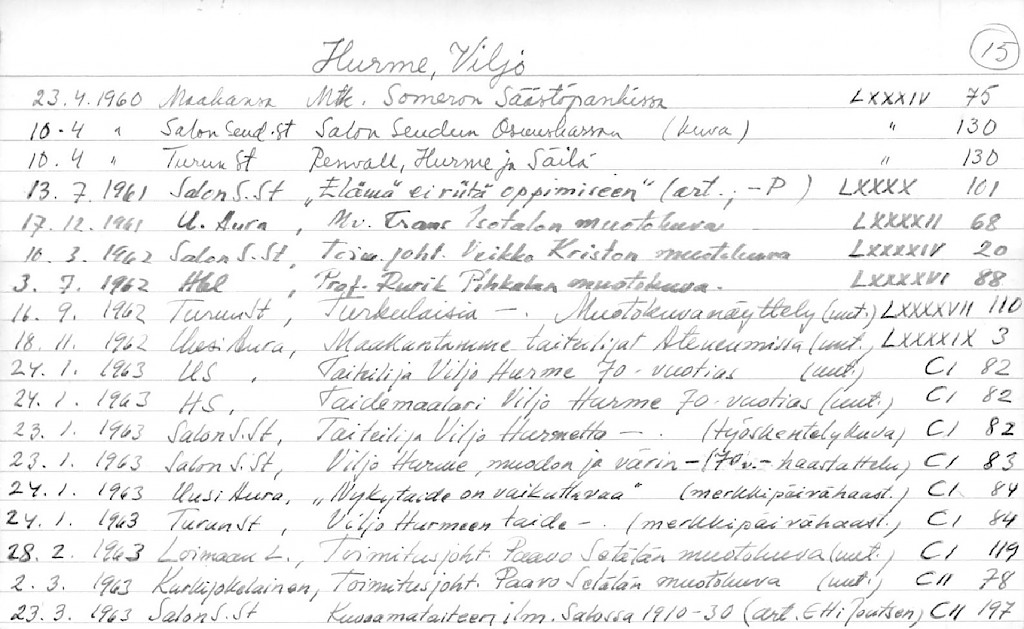 15
Hurme, Viljo
23.4.1960 Maakansa Mtk. Someron Säästöpankissa LXXXIV 75
10.4 " Salon Seud.St Salon Seudun Osuuskassan (kuva) " 130
10.4 " Turun St Penvall, Hurme ja Säilä " 130
13.7.1961 Salon S.St „Elämä ei riitä oppimiseen" (art.; -P) LXXXX 101
17.12.1961 U. Aura, Mv. Frans Isotalon muotokuva LXXXXII 68
10.3.1962 Salon S.St, Toim.joht. Veikko Kriston muotokuva LXXXXIV 20
3.7.1962 Hbl, Prof. Rurik Pihkalan muotokuva. LXXXXVI 88
16.9.1962 Turun St, Turkulaisia -. Muotokuvanäyttely (uut.) LXXXXVII 110
18.11.1962 Uusi Aura, Maakuntamme taiteilijat Ateneumissa (uut.) LXXXXIX 3
24.1.1963 US, Taiteilija Viljo Hurme 70-vuotias (uut.) CI 82
24.1.1963 HS, Taidemaalari Viljo Hurme 70-vuotias (uut.) CI 82
23.1.1963 Salon S.St, Taiteilija Viljo Hurmetta -. (työskentelykuva) CI 82
23.1.1963 Salon S.St, Viljo Hurme, muodon ja värin - (70v.-haastattelu) CI 83
24.1.1963 Uusi Aura, „Nykytaide on vaikuttavaa" (merkkipäivähaast.) CI 84
24.1.1963 Turun St, Viljo Hurmeen taide -. (merkkipäivähaast.) CI 84
28.2.1963 Loimaan L., Toimitusjoht. Paavo Setälän muotokuva (uut.) CI 119
2.3.1963 Kurkijokelainen, Toimitusjoht. Paavo Setälän muotokuva (uut.) CII 78
23.3.1963 Salon S.St Kuvaamataiteen ilm. Salossa 1910-30 (art. E Hi Poutsen) CII 197